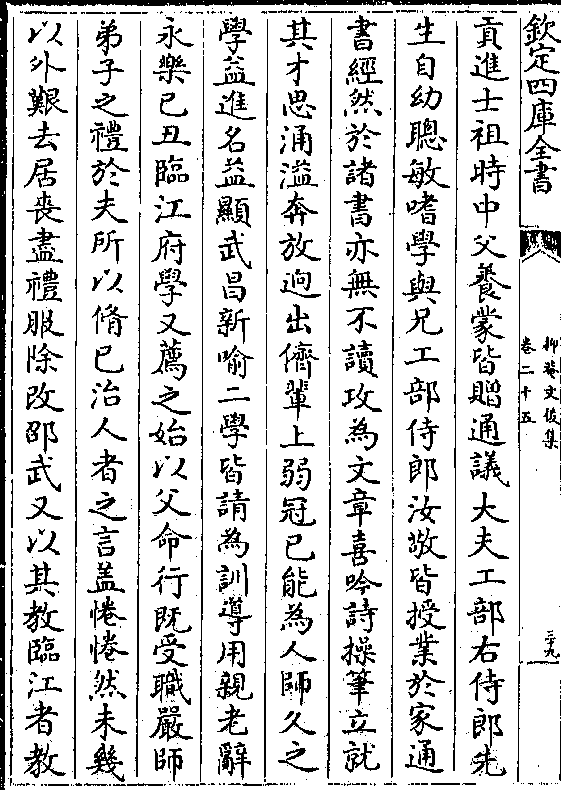 欽定四庫全書
抑菴文後集
卷二十五
三十九
貢進士祖時中父養蒙皆贈通議大夫工部右侍郎先
生自幼聰敏嗜學與兄工部侍郎汝敬皆授業於家通
書經然於諸書亦無不讀攻為文章喜吟詩操筆立就
其才思涌溢奔放逈出儕輩上弱冠已能為人師久之
學益進名益顯武昌新喻二學皆請為訓導用親老辭
永樂己丑臨江府學又薦之始以父命行既受職嚴師
弟子之禮於夫所以脩已治人者之言盖惓惓然未幾
以外艱去居喪盡禮服除改邵武又以其教臨江者教